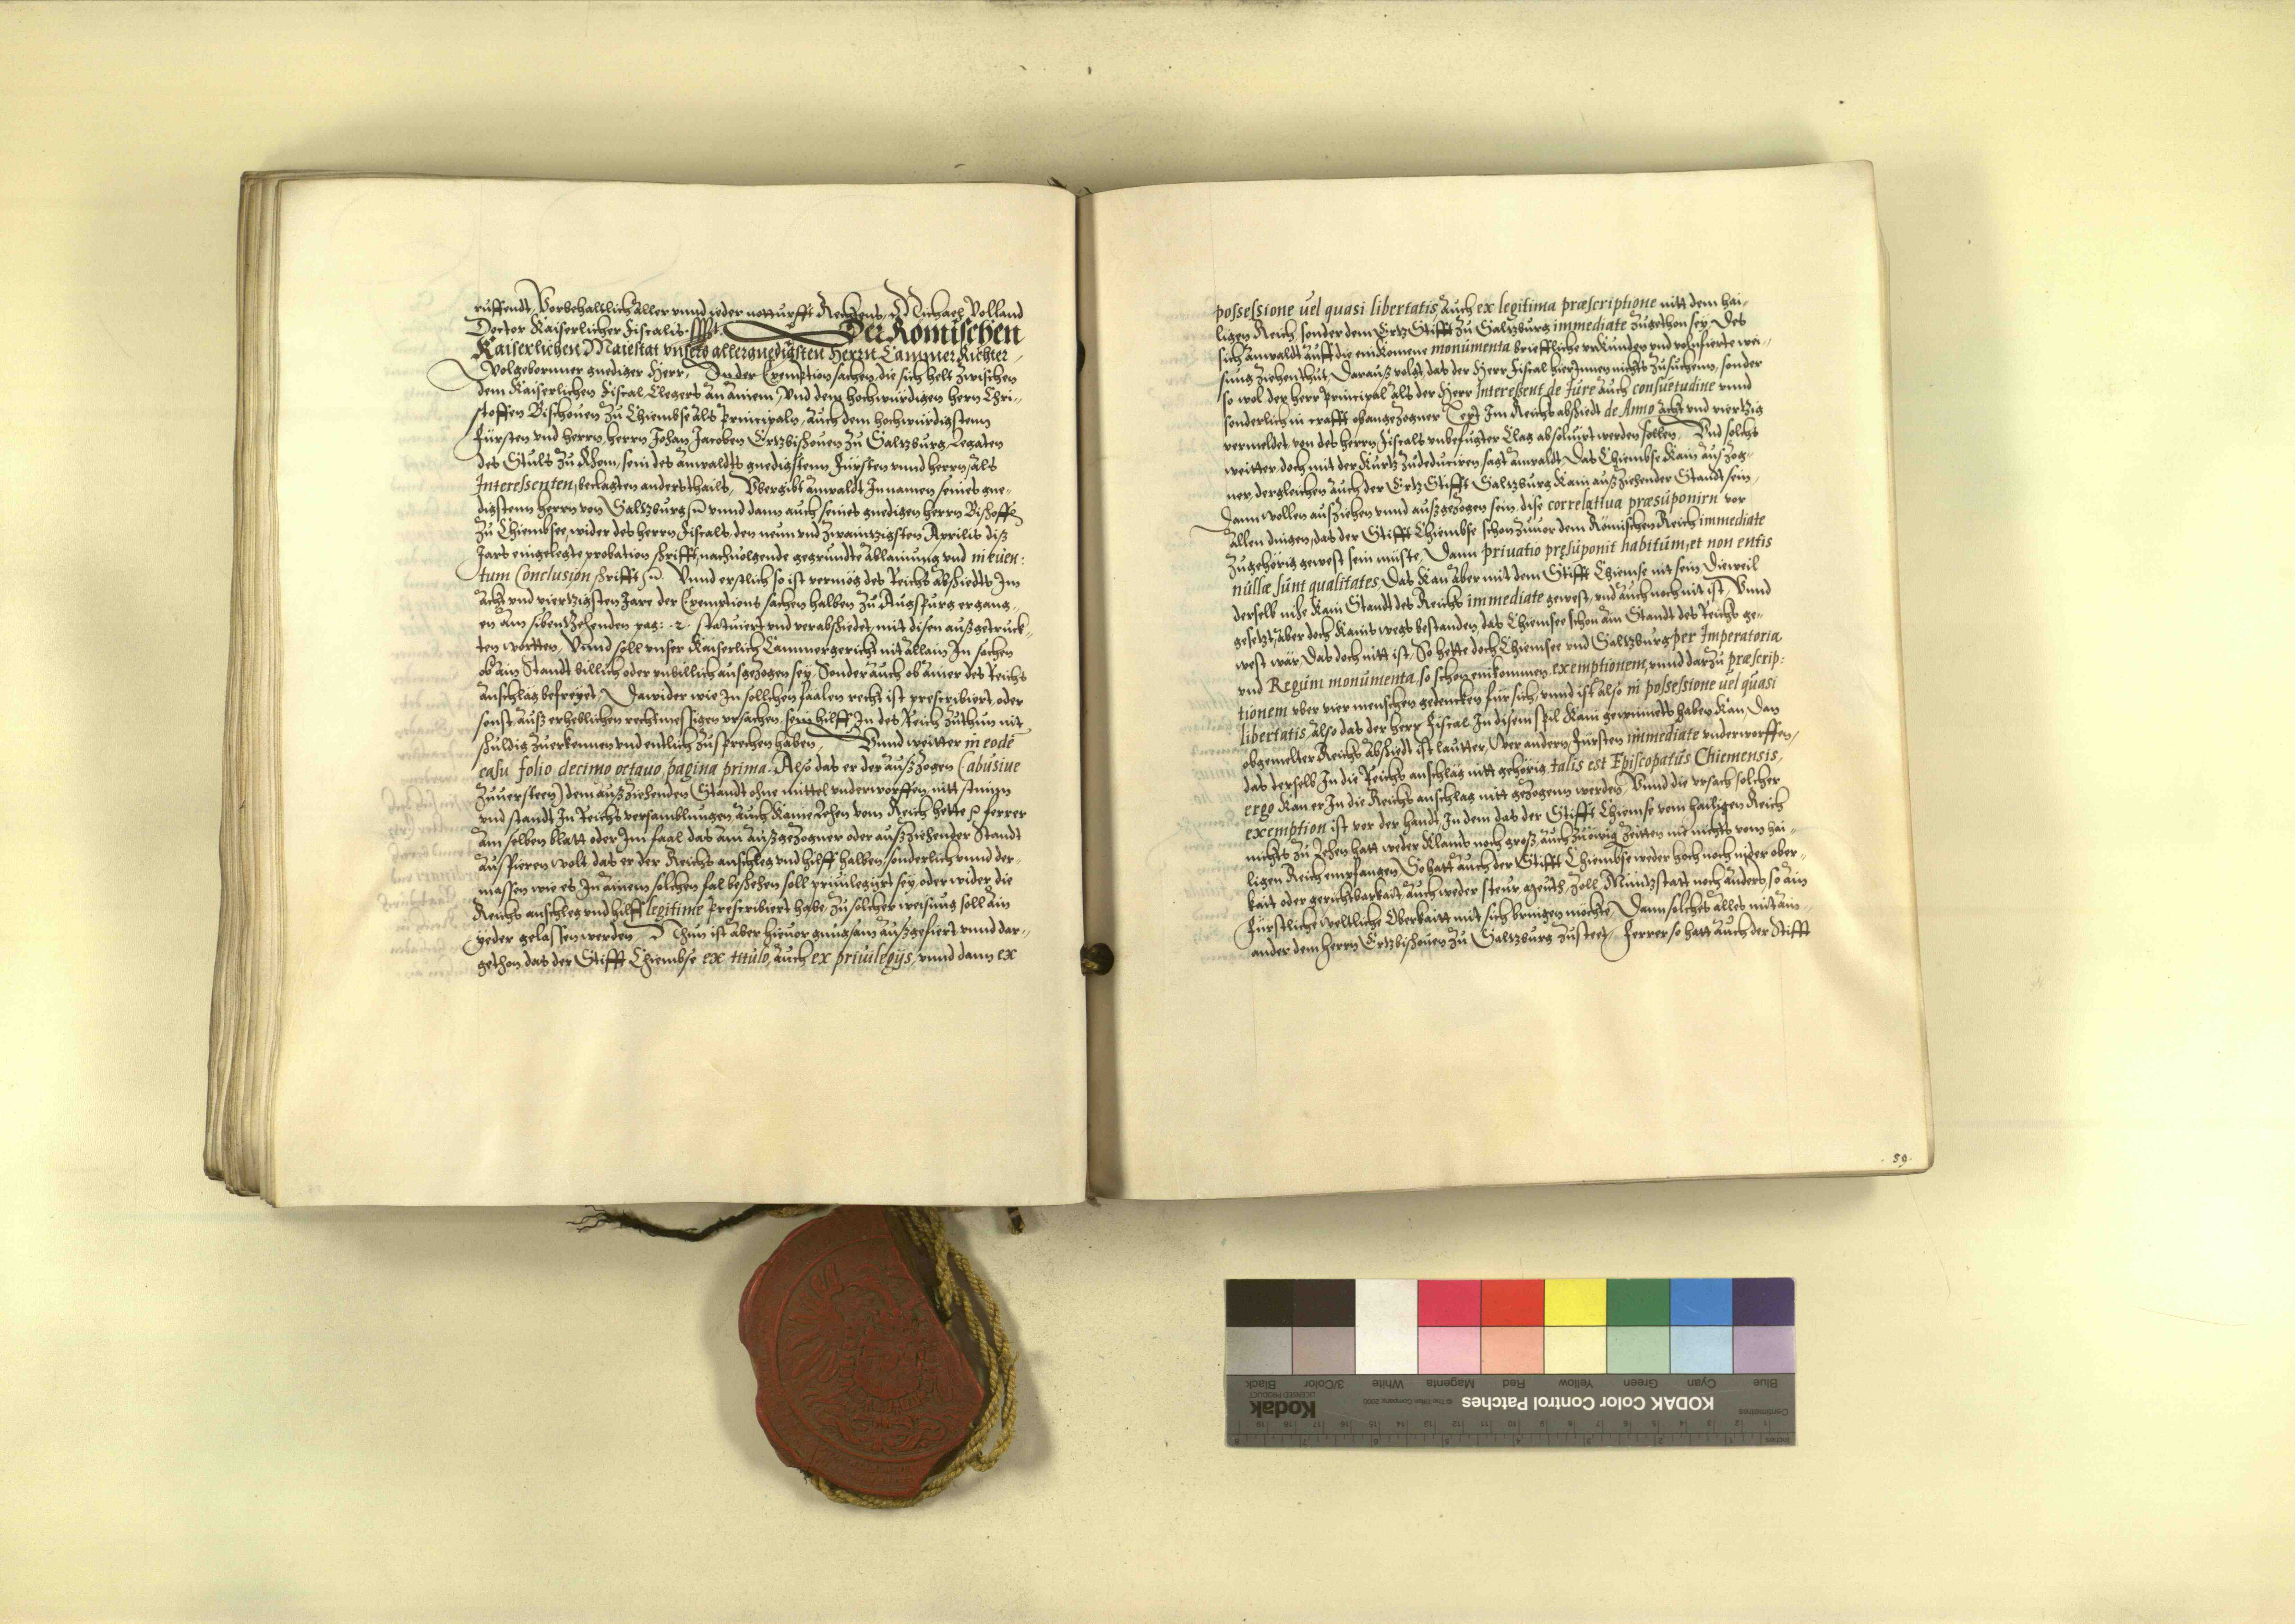 rüffendt, Vorbehaltlich aller vnnd ieder notturfft Rechtens, Michael Volland
Doctor Kaiserlicher Fiscalis Der Römischen
Kaiserlichen Maiestat vnsers allergnedigsten Herrn Cammer Richter
Wolgebornner gnediger Herr, In der Exemption sachen, die sich helt zwischen
dem Kaiserlichen Fiscal Clegers an ainem, Vnd dem hochwürdigen hern Chri-
stoffen Bischouen zu Chiembse als Principaln, auch dem hochwürdigstenn
Fürsten vnd herrn, herrn Johan Jacoben Ertzbischouen zu Saltzburg Legaten
des Stuls zu Rhom, sein des anwaldts gnedigstenn Fürsten vnnd herrn, als
Interessenten, beclagten anderstthails, Vbergibt anwaldt In namen seines gne-
digstenn herrn von Saltzburg vnnd dann auch seines gnedigen herrn Bischoffs
zu Chiembsee, wider des herrn Fiscals, den neun vnd zwaintzigsten Aprilis diß
Jars eingelegte probation schrifft, nachuolgende gegrundte ablainung vnd in euen-
tum Conclusion schrifft Vnnd erstlich so ist vermög des Reichs abschiedts Im
acht vnd viertzigsten Jare der Exemptions sachen halben zu Augspurg ergang-
en am sibentzehenden pag: 2. statuiert vnd verabschiedet, mit disen außgetruck-
ten wortten, Vnnd soll vnser Kaiserlich Cammergericht nit allain In sachen
ob ain Standt billich oder vnbillich ausgezogen sey, Sonder auch ob ainer des Reichs
anschlag befreyet, Dawider wie In sollchen faalen recht ist prescribiert, oder
sonst auß erheblichen rechtmessigen vrsachen, sein hilff In des Reich zuthun nit
schuldig zuerkennen vnd entlich zusprechen haben, Vnnd weitter in eodē
casu folio decimo octauo pagina prima. Also das er der außzogen (abusiue
zuuersteen) dem außziehenden Standt ohne mittel vnderworffen, nitt stimm
vnd standt In Reichs versamblungen auch Kaine Lehen vom Reich hette ferrer
am selben blatt oder Im faal das ain außgezogner oder außziehender Standt
ausfieren wolt, das er der Reichs anschleg vnd hilff halben, sonderlich vnnd der-
massen wie es In ainem solchen fal beschehen soll priuilegijrt sey, oder wider die
Reichs anschleg vnd hilff legitime prescribiert habe, zu solcher weisung soll ain
yeder gelassen werden Nun ist aber hieuor gnugsam außgefiert vnnd dar-
gethon, das der Stifft Chiembse ex titulo, auch ex priuilegijs, vnnd dann ex
possessione uel quasi libertatis, auch ex legitima præscriptione nitt dem hai-
ligen Reich, sonder dem Ertz Stifft zu Saltzburg immediate zugethon sey, Des
sich anwaldt auff die einkomene monumenta briefliche vrkunden vnd volnfierte wei-
sung ziehen thut, Darauß volgt, das der herr Fiscal hierInnen nichts zusuchenn, sonder
so wol der herr Principal als der herr Interessent de Jure auch consuetudine vnnd
sonderlich in crafft obangezogner Text Im Reichs abschiedt de Anno acht vnd viertzig
vermeldet, von des herrn Fiscals vnbefugter Clag absoluirt werden sollen, Vnd solchs
weitter, doch mit der kürtz zudeduciren, sagt anwaldt, Das Chiembse Kain außzog-
ner, dergleichen auch der Ertz Stifft Saltzburg Kain außziehender Standt sein,
Dann wollen ausziehen vnnd außgezogen sein, dise correlatiua præsuponirn vor
allen dingen, das der Stifft Chiembse schon zuuor dem Römischen Reich immediate
zugehörig gewest sein müste, Dann priuatio presuponit habitum, et non entis
nullæ sunt qualitates, Das kan aber mit dem Stifft Chiemse nit sein, Dieweil
derselb nihe Kain Standt des Reichs immediate gewest, vnd auch noch nit ist, Vnnd
gesetzt, aber doch Kains wegs bestanden, das Chiemsee schon ain Standt des Reichs ge-
west wär, Das doch nitt ist, So hette doch Chiemsee vnd Saltzburg per Imperatoria
vnd Regum monumenta, so schon einkommen, exemptionem, vnnd darzu præscrip-
tionem vber vier menschen gedencken für sich, vnnd ist also in possessione uel quasi
libertatis, also das der herr Fiscal In disem spil Kain gewinnets haben kan, Dan
obgemelter Reichs abschiedt ist lautter, Wer andern Fürsten immediate vnderworffen,
das derselb In die Reichs anschläg nitt gehörig, talis est Episcopatus Chiemensis,
ergo kan er In die Reichs anschlag nitt gezogenn werden, Vnnd die vrsach solcher
exemption ist vor der handt, In dem das der Stifft Chiemse vom hailigen Reich
nichts zu Lehen hatt weder klains noch groß, auch zu ewig zeitten nie nichts vom hai-
ligen Reich empfangen, So hatt auch der Stifft Chiembse weder hoch noch nider ober-
kait oder gerichtbarkait, auch weder steur, gleith, Zoll, Müntzstatt noch anders, so ain
Fürstliche weltliche Oberkaitt mit sich bringen möchte, Dann solches alles mit ain-
ander dem herrn Ertzbischouen zu Saltzburg zusteet, Ferrer so hatt auch der Stifft
59
Blue Cyan Green Yellow Red Magenta White 3/Color Black
KODAK Color Control Patches
Kodak
LICENSED PRODUCT
© The Tiffen Company, 2000
Centimetres
Inches